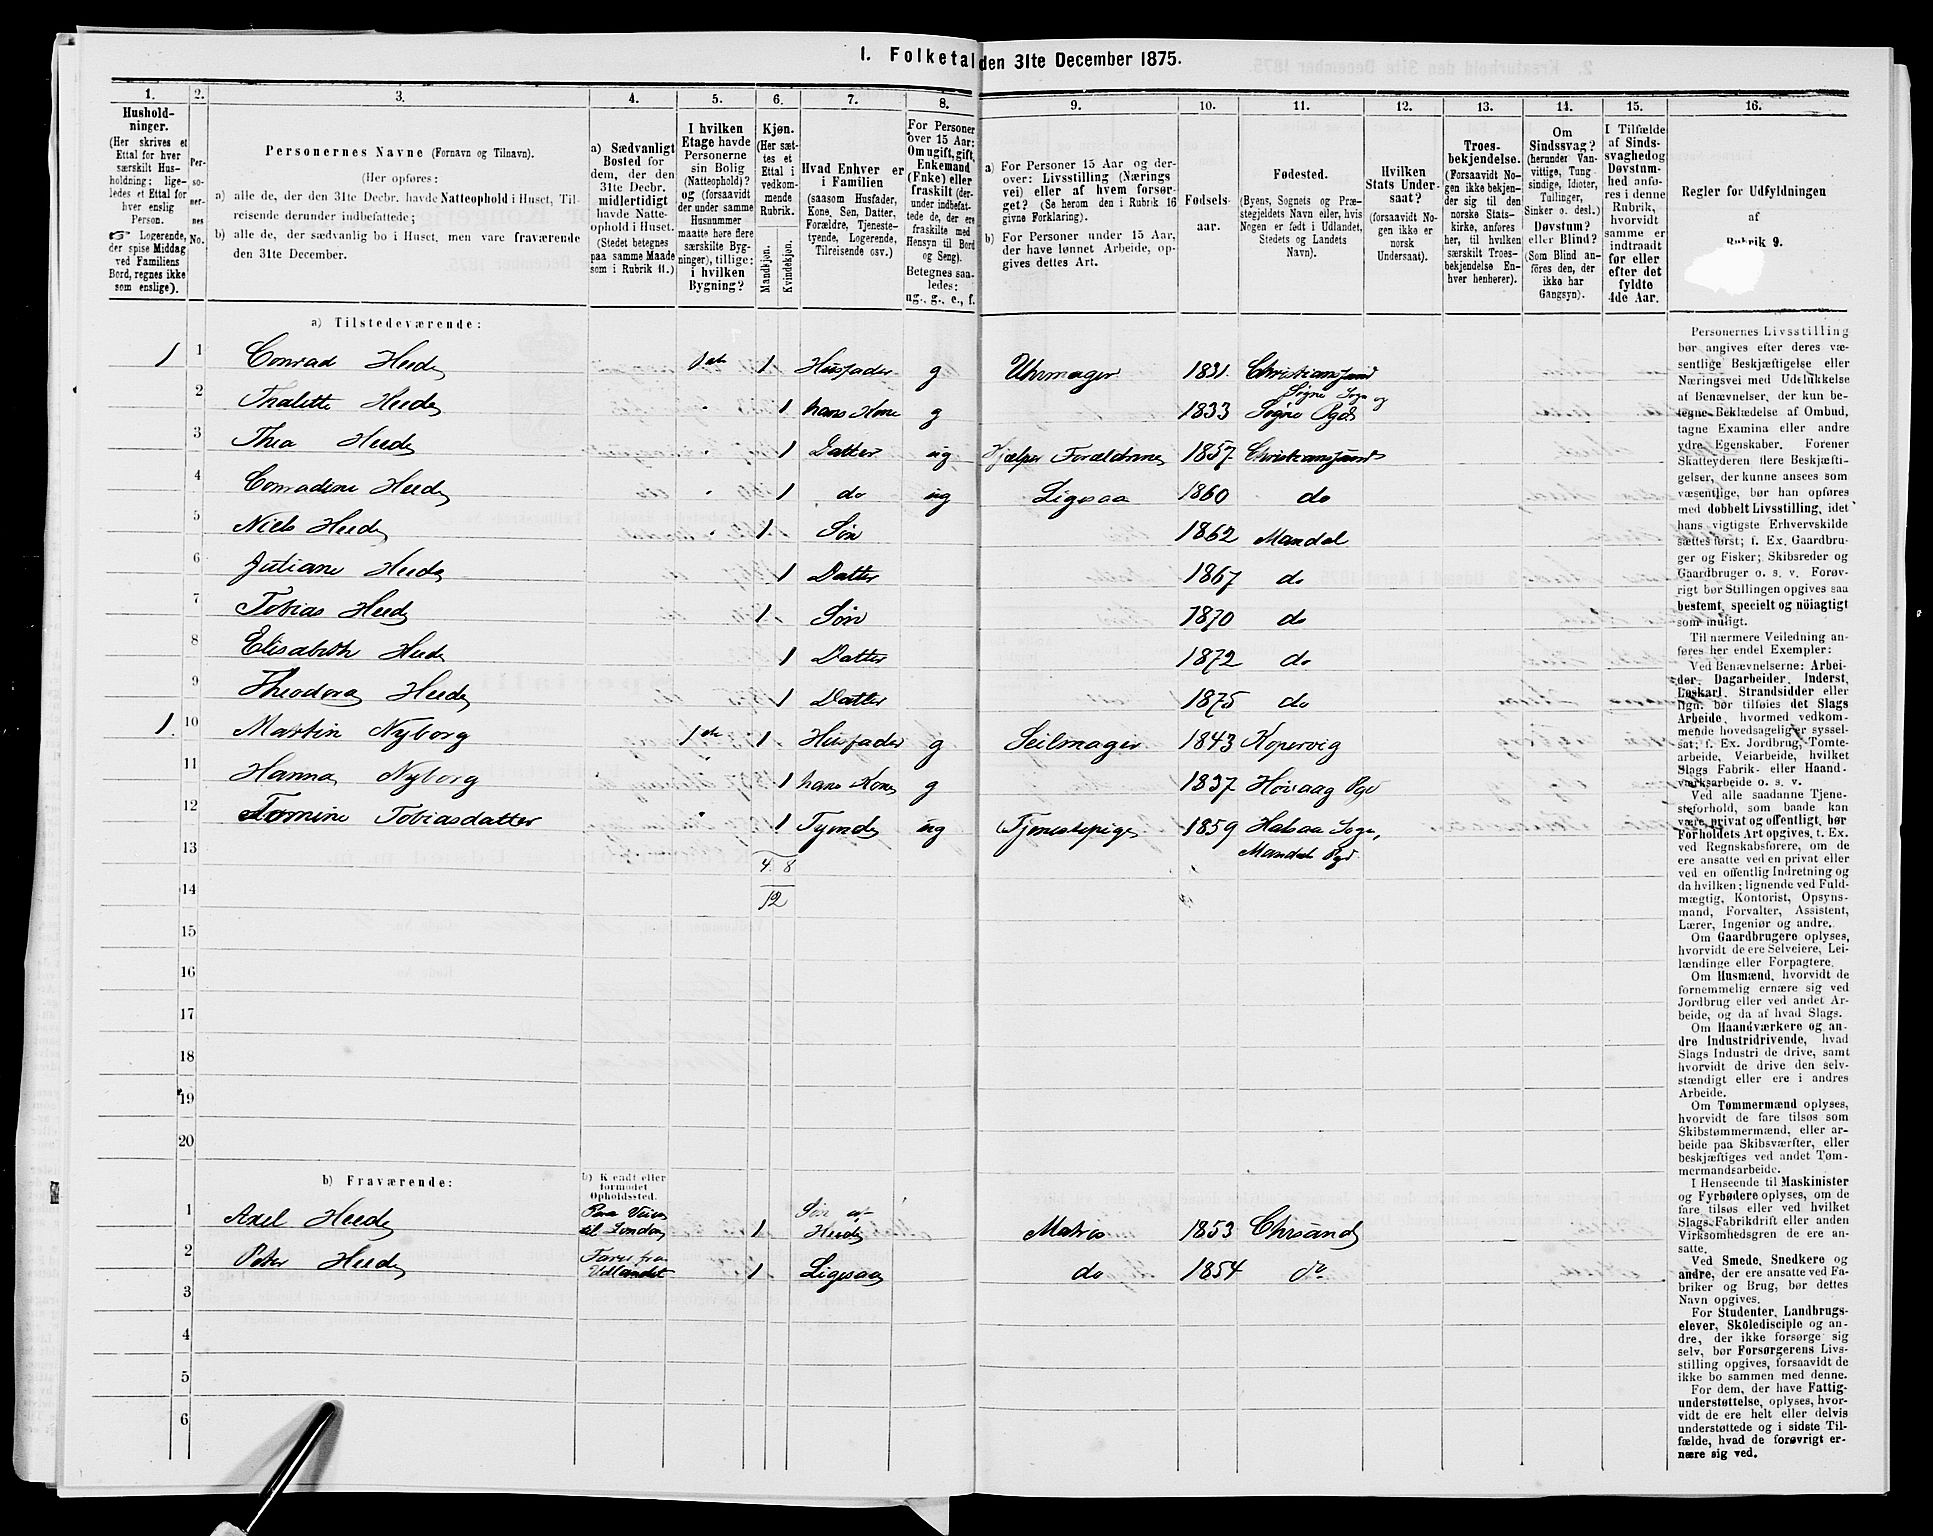 1. Folketal den 31te December 1875.
1. 2. 3. 4. 5. 6. 7. 8. 9. 10. 11. 12. 13. 14. 15. 16.
Hushold-
ninger.
(Her skrives et
Ettal for hver
særskilt Hus-
holdning; lige-
ledes et Ettal for
hver enslig
Person.
☞ Logerende,
der spise Middag
ved Familiens
Bord, regnes ikke
som enslige).
Per-
so-
ner-
nes
No.
Personernes Navne (Fornavn og Tilnavn).
(Her opføres:
a) alle de, der den 31te Decbr. havde Natteophold i Huset, Til-
reisende derunder indbefattede;
b) alle de, der sædvanlig bo i Huset, men vare fraværende
den 31te December.
a) Sædvanligt
Bosted for
dem, der den
31te Decbr.
midlertidigt
havde Natte-
ophold i Huset.
(Stedet betegnes
paa samme Maade
som i Rubrik 11.)
I hvilken
Etage havde
Personerne
sin Bolig
(Natteophold)?
og (forsaavidt
der under samme
Husnummer
maatte høre flere
særskilte Byg-
ninger), tillige:
i hvilken
Bygning?
Kjøn.
(Her sæt-
tes et
Ettal i
vedkom-
mende
Rubrik.
Mandkjøn.
Kvindekjøn.
Hvad Enhver er
i Familien
(saasom Husfader,
Kone, Søn, Datter,
Forældre, Tjeneste-
tyende, Logerende,
Tilreisende osv.)
For Personer
over 15 Aar:
Om ugift, gift,
Enkemand
(Enke) eller
fraskilt (der-
under indbefat-
tede de, der ere
fraskilte med
Hensyn til Bord
og Seng).
Betegnes saa-
ledes:
ug., g., e., f.
a) For Personer 15 Aar og der-
over: Livsstilling (Nærings
vei) eller af hvem forsør-
get? (Se herom den i Rubrik 16
givne Forklaring).
b) For Personer under 15 Aar,
der have lønnet Arbeide, op-
gives dettes Art.
Fødsels-
aar.
Fødested.
(Byens, Sognets og Præ-
stegjeldets Navn eller, hvis
Nogen er født i Udlandet,
Stedets og Landets
Navn).
Hvilken
Stats Under-
saat?
(forsaavidt No-
gen ikke er
norsk
Undersaat).
Troes-
bekjendelse.
(Forsaavidt No-
gen ikke bekjen-
der sig til den
norske Stats-
kirke, anføres
her, til hvilken
særskilt Troes-
bekjendelse En-
hver henhører).
Om
Sindssvag?
(herunder Van-
vittige, Tung
sindige, Idioter,
Tullinger,
Sinker o. desl.)
Døvstum?
eller Blind?
(Som Blind an-
føres den, der
ikke har
Gangsyn).
I Tilfælde
af Sinds-
svaghedog
Døvstum-
hed anfø-
res i denne
Rubrik,
hvorvidt
samme er
indtraadt
før eller
efter det
fyldte
4de Aar.
Regler for Udfyldningen
af
Rubrik 9.
a) Tilstedeværende:
1 1 Conrad Heede 1ste 1 Husfader g Uhrmager 1831. Christianssand
2 Thalette Heede " 1 hans Kone g 1833 Søgne Sogn og Søgne Pgd
3 Thea Heede " 1 Datter ug Hjælper Forældrene 1857. Christianssand
4 Conradine Heede " 1 do ug Ligesaa 1860 do
5 Niels Heede " 1. Søn 1862 Mandal
6 Juliane Heede 1 Datter 1867 do
7 Tobias Heede 1. Søn 1870 do
8 Elisabeth Heede 1 Datter 1872 do
9 Theodora Heede 1 Datter 1875 do
1. 10 Martin Nyborg 1ste 1 Husfader g Seilmager 1843 Kopervig
11 Hanna Nyborg " 1 hans Kone g 1837 Høivaag Pgd
12 Tomine Tobiasdatter " 1 Tyende ug Tjenestepige 1859 Halsaa Sogn,
Mandals Pgd.
13 4. 8
14 12
15
16
17
18
19
20
b) Fraværende:
b) Kjendt eller
formodet
Opholdssted.
1 Axel Heede Paa Veien til London 1 Søn af Heede Matros 1853 Chrsand
2 Peter Heede Farer fra Udlandet 1 Ligesaa do 1854 do
3
4
5
6
Personernes Livsstilling
bør angives efter deres væ-
sentlige Beskjæftigelse eller
Næringsvei med Udelukkelse
af Benævnelser, der kun be-
tegne Beklædelse af Ombud,
tagne Examina eller andre
ydre Egenskaber. Forener
Skatteyderen flere Beskjæfti-
gelser, der kunne ansees som
væsentlige, bør han opføres
med dobbelt Livsstilling, idet
hans vigtigste Erhvervskilde
sættes først; f. Ex. Gaardbru-
ger og Fisker; Skibsreder og
Gaardbruger o. s. v. Forøv-
rigt bør Stillingen opgives saa
bestemt, specielt og nöiagtigt
som muligt.
Til nærmere Veiledning an-
føres her endel Exempler:
Ved Benævnelserne: Arbei-
der, Dagarbeider, Inderst,
Løskarl, Strandsidder eller
lign. bør tilføies det Slags
Arbeide, hvormed vedkom-
mende hovedsagelig er syssel-
sat; f. Ex. Jordbrug, Tomte-
arbeide, Veiarbeide, hvilket
Slags Fabrik- eller Haand-
værksarbeide o. s. v.
Ved alle saadanne Tjene-
steforhold, som baade kan
være privat og offentlig, bør
Forholdets Art opgives, t. Ex.
ved Regnskabsførere, om de
ere ansatte ved en privat eller
ved en offentlig Indretning og
da hvilken; lignende ved Fuld-
mægtig, Kontorist, Opsyns-
mand, Forvalter, Assistent,
Lærer, Ingeniør og andre.
Om Gaardbrugere oplyses,
hvorvidt de ere Selveiere, Lei-
lændinge eller Forpagtere.
Om Husmænd, hvorvidt de
fornemmelig ernære sig ved
Jordbrug eller ved andet Ar-
beide, og da af hvad Slags.
Om Haandværkere og an-
dre Industridrivende, hvad
Slags Industri de drive, samt
hvorvidt de drive den selv-
stændigt eller ere i andres
Arbeide.
Om Tømmermænd oplyses,
hvorvidt de fare tilsøs som
Skibstømmermænd, eller ar-
beide paa Skibsværfter, eller
beskjæftiges ved andet Tøm-
mermandsarbeide.
I Henseende til Maskinister
og Fyrbødere oplyses, om de
fare tilsøs eller ved hvilket
Slags Fabrikdrift eller anden
Virksomhedsgren de ere an-
satte.
Ved Smede, Snedkere og
andre, der ere ansatte ved Fa-
briker og Brug, bør dettes
Navn opgives.
For Studenter, Landbrugs-
elever, Skoledisciple og an-
dre, der ikke forsørge sig
selv, bør Forsørgerens Livs-
stilling opgives, forsaavidt de
ikke bo sammen med denne.
For dem, der have Fattig-
understøttelse, oplyses, hvor-
vidt de ere helt eller delvis
understøttede og i sidste Til-
fælde, hvad de forøvrigt er-
nære sig ved.